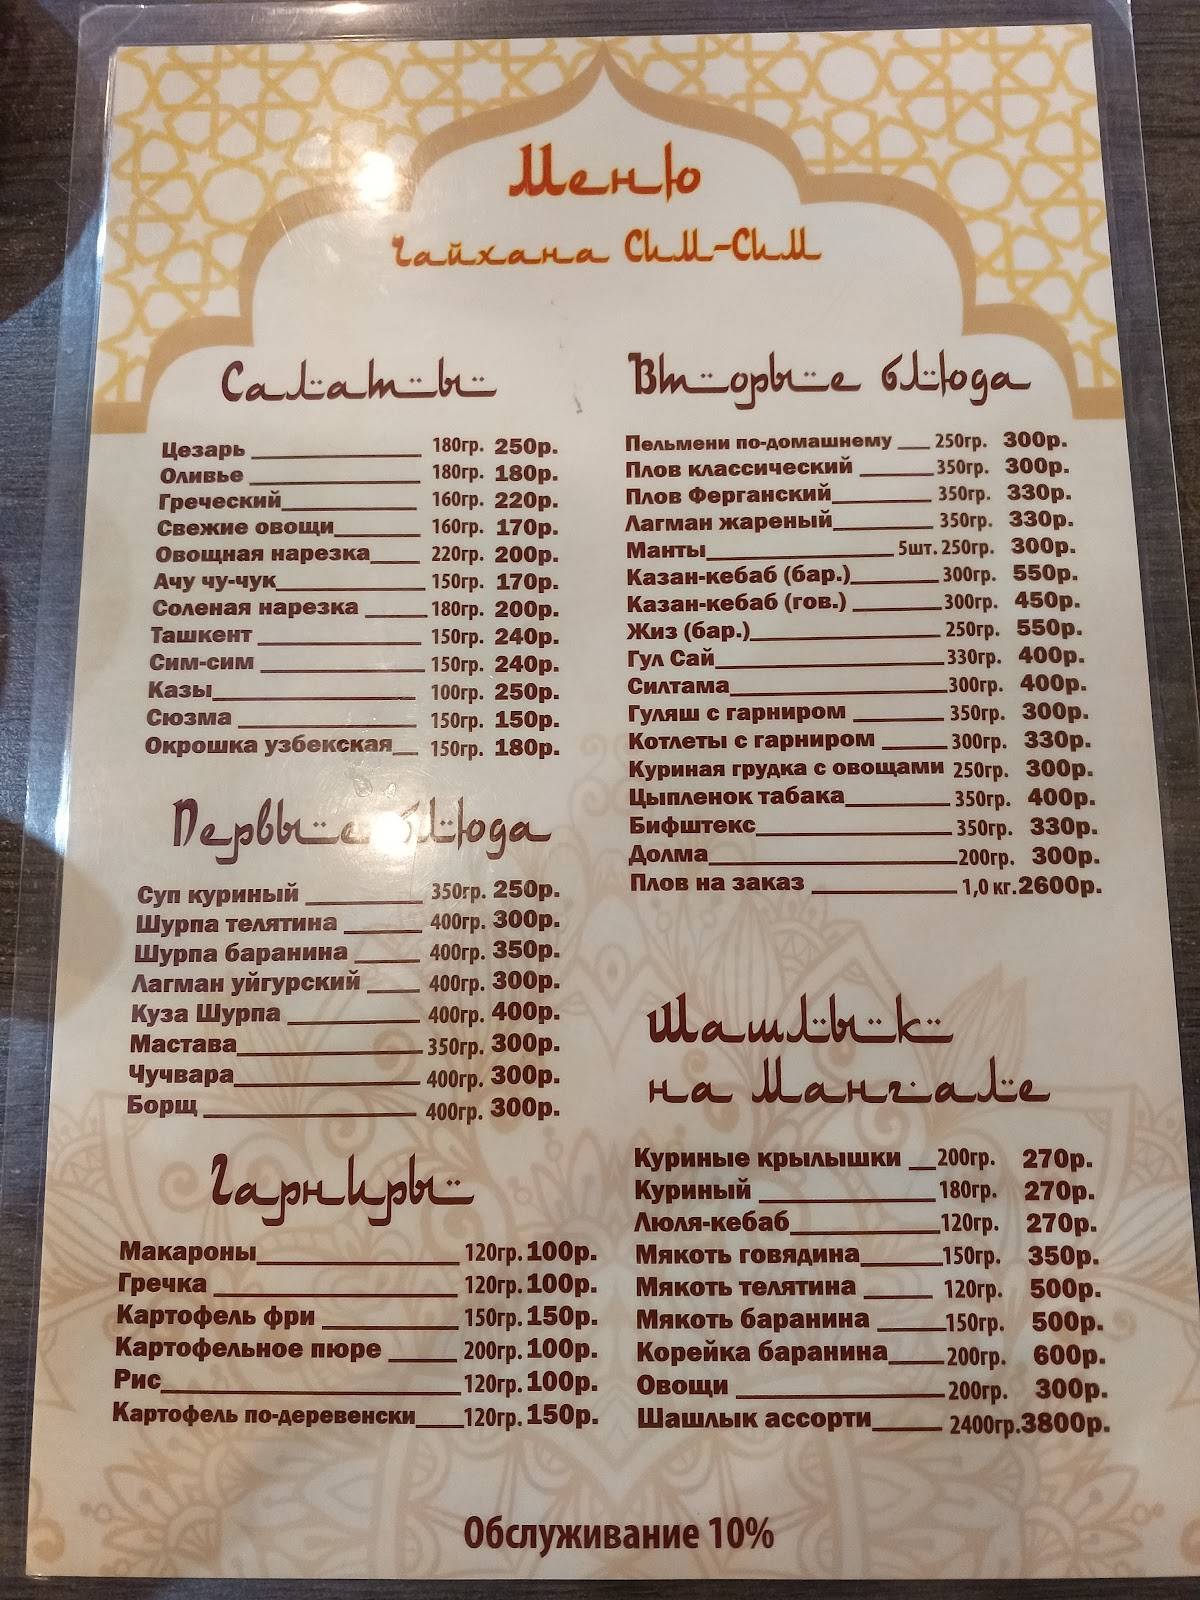 Меню
Чайхана Сим-Сим
Салаты
Цезарь 180гр. 250р.
Оливье 180гр. 180р.
Греческий 160гр. 220р.
Свежие овощи 160гр. 170р.
Овощная нарезка 220гр. 200р.
Ачу чу-чук 150гр. 170р.
Соленая нарезка 180гр. 200р.
Ташкент 150гр. 240р.
Сим-сим 150гр. 240р.
Казы 100гр. 250р.
Сюзма 150гр. 150р.
Окрошка узбекская 150гр. 180р.
Первые блюда
Суп куриный 350гр. 250р.
Шурпа телятина 400гр. 300р.
Шурпа баранина 400гр. 350р.
Лагман уйгурский 400гр. 300р.
Куза Шурпа 400гр. 400р.
Мастава 350гр. 300р.
Чучвара 400гр. 300р.
Борщ 400гр. 300р.
Гарниры
Макароны 120гр. 100р.
Гречка 120гр. 100р.
Картофель фри 150гр. 150р.
Картофельное пюре 200гр. 100р.
Рис 120гр. 100р.
Картофель по-деревенски 120гр. 150р.
Вторые блюда
Пельмени по-домашнему 250гр. 300р.
Плов классический 350гр. 300р.
Плов Ферганский 350гр. 330р.
Лагман жареный 350гр. 330р.
Манты 5шт. 250гр. 300р.
Казан-кебаб (бар.) 300гр. 550р.
Казан-кебаб (гов.) 300гр. 450р.
Жиз (бар.) 250гр. 550р.
Гул Сай 330гр. 400р.
Силтама 300гр. 400р.
Гуляш с гарниром 350гр. 300р.
Котлеты с гарниром 300гр. 330р.
Куриная грудка с овощами 250гр. 300р.
Цыпленок табака 350гр. 400р.
Бифштекс 350гр. 330р.
Долма 200гр. 300р.
Плов на заказ 1,0 кг. 2600р.
Шашлык
на Мангале
Куриные крылышки 200гр. 270р.
Куриный 180гр. 270р.
Люля-кебаб 120гр. 270р.
Мякоть говядина 150гр. 350р.
Мякоть телятина 120гр. 500р.
Мякоть баранина 150гр. 500р.
Корейка баранина 200гр. 600р.
Овощи 200гр. 300р.
Шашлык ассорти 2400гр. 3800р.
Обслуживание 10%